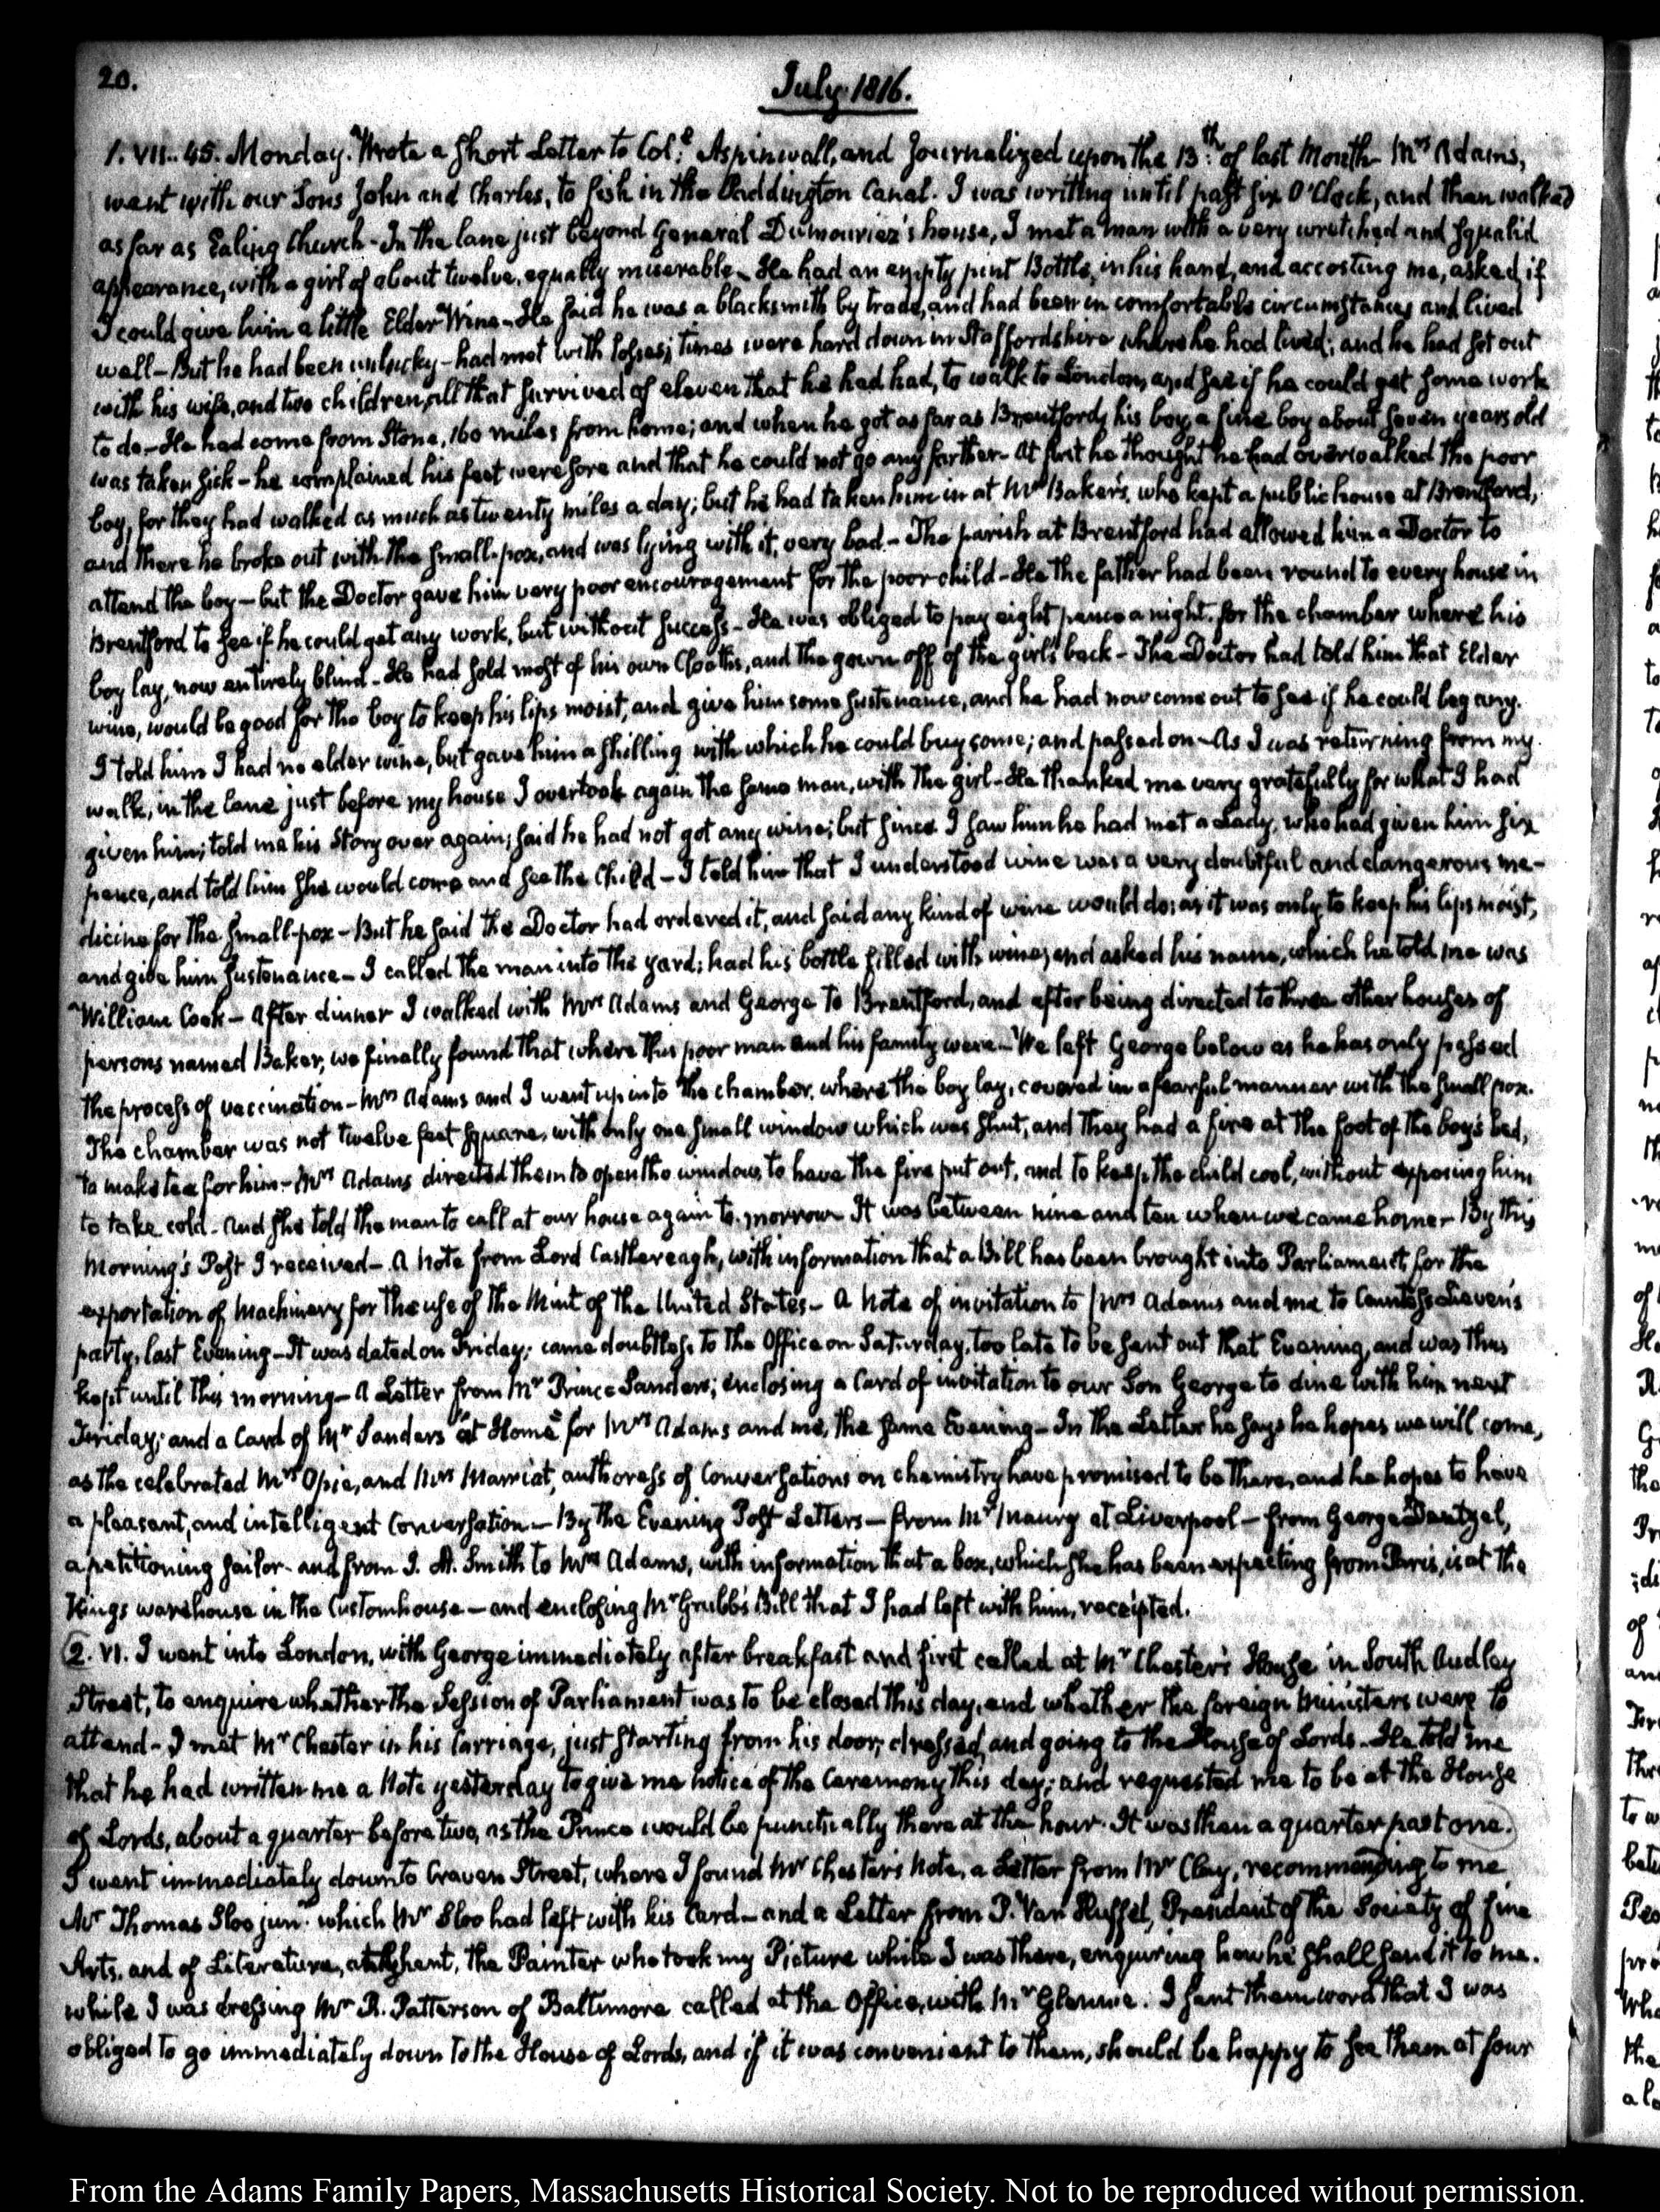 20.
July 1816.
1. VII.. 45. Monday. Wrote a short Letter to Col:l Aspinwall, and Journalized upon the 13:th of last Month. Mrs Adams,
went with our Sons John and Charles, to fish in the Paddington Canal. I was writing until past six O'Clock, and then walked
as far as Ealing Church - In the lane just beyond General Dumouriez's house, I met a man with a very wretched and squalid
appearance, with a girl of about twelve, equally miserable - He had an empty pint Bottle, in his hand, and accosting me, asked, if
I could give him a little Elder Wine - He said he was a blacksmith by trade, and had been in comfortable circumstances and lived
well - But he had been unlucky - had met with losses; times were hard down in Staffordshire where he had lived; and he had set out
with his wife, and two children, all that survived of eleven that he had had, to walk to London, and see if he could get some work
to do - He had come from Stone, 160 miles from home; and when he got as far as Brentford, his boy, a fine boy about seven years old
was taken sick - he complained his feet were sore and that he could not go any farther - At first he thought he had overwalked the poor
boy, for they had walked as much as twenty miles a day; but he had taken him in at Mrs Baker's, who kept a public house at Brentford,
and there he broke out with the small-pox, and was lying with it, very bad. - The parish at Brentford had allowed him a Doctor to
attend the boy - but the Doctor gave him very poor encouragement for the poor child - He the father had been round to every house in
Brentford to see if he could get any work, but without success - He was obliged to pay eight pence a night, for the chamber where his
boy lay, now entirely blind - He had sold most of his own Cloaths, and the gown off of the girl's back - The Doctor had told him that Elder
wine, would be good for the boy to keep his lips moist, and give him some sustenance, and he had now come out to see if he could beg any.
I told him I had no elder wine, but gave him a shilling with which he could buy some; and passed on - As I was returning from my
walk, in the lane just before my house I overtook again the same man, with the girl - He thanked me very gratefully for what I had
given him; told me his story over again; said he had not got any wine; but since I saw him he had met a Lady, who had given him six
pence, and told him she would come and see the Child - I told him that I understood wine was a very doubtful and dangerous me-
dicine for the small-pox - But he said the Doctor had ordered it, and said any kind of wine would do; as it was only to keep his lips moist,
and give him sustenance - I called the man into the yard; had his bottle filled with wine; and asked his name, which he told me was
William Cook - After dinner I walked with Mrs Adams and George to Brentford, and after being directed to three other houses of
persons named Baker, we finally found that where this poor man and his family were - We left George below as he has only passed
the process of vaccination - Mrs Adams and I went up into the chamber, where the boy lay, covered in a fearful manner with the small pox.
The chamber was not twelve feet square, with only one small window which was shut, and they had a fire at the foot of the boy's bed,
to make tea for him - Mrs Adams directed them to open the window, to have the fire put out, and to keep the child cool, without exposing him
to take cold - And she told the man to call at our house again to-morrow - It was between nine and ten when we came home - By this
Morning's Post I received - A Note from Lord Castlereagh, with information that a Bill has been brought into Parliament for the
exportation of Machinery for the use of the Mint of the United States - A Note of invitation to Mrs Adams and me to Countess Lieven's
party, last Evening - It was dated on Friday; came doubtless to the Office on Saturday, too late to be sent out that Evening, and was thus
kept until this morning - A Letter from Mr Prince Sanders; enclosing a Card of invitation to our Son George to dine with him next
Friday; and a Card of Mr Sanders "at Home" for Mrs Adams and me, the same Evening - In the Letter he says he hopes we will come,
as the celebrated Mrs Opie, and Mrs Marriat, authoress of Conversations on Chemistry have promised to be there, and he hopes to have
a pleasant, and intelligent Conversation - By the Evening Post Letters - from Mr Maury at Liverpool - from George Dantzel,
a petitioning sailor - and from J. A. Smith to Mrs Adams, with information that a box, which she has been expecting from Paris, is at the
Kings warehouse in the Customhouse - and enclosing Mr Grubb's Bill that I had left with him, receipted.
2. VI. I went into London, with George immediately after breakfast and first called at Mr Chester's House in South Audley
Street, to enquire whether the Session of Parliament was to be closed this day, and whether the foreign Ministers were to
attend - I met Mr Chester in his Carriage, just starting from his door; dressed, and going to the House of Lords. He told me
that he had written me a Note yesterday to give me notice of the Ceremony this day; and requested me to be at the House
of Lords, about a quarter before two, as the Prince would be punctually there at the hour. It was then a quarter past one.
I went immediately down to Craven Street, where I found Mr Chester's Note, a Letter from Mr Clay, recommending to me
Mr Thomas Sloo junr. which Mr Sloo had left with his Card - and a Letter from P. Van Huffel, President of the Society of fine
Arts, and of Literature, at Ghent, the Painter who took my Picture while I was there, enquiring how he shall send it to me.
while I was dressing Mr R. Patterson of Baltimore called at the Office, with Mr Glennie. I sent them word that I was
obliged to go immediately down to the House of Lords, and if it was convenient to them, should be happy to see them at four
From the Adams Family Papers, Massachusetts Historical Society. Not to be reproduced without permission.